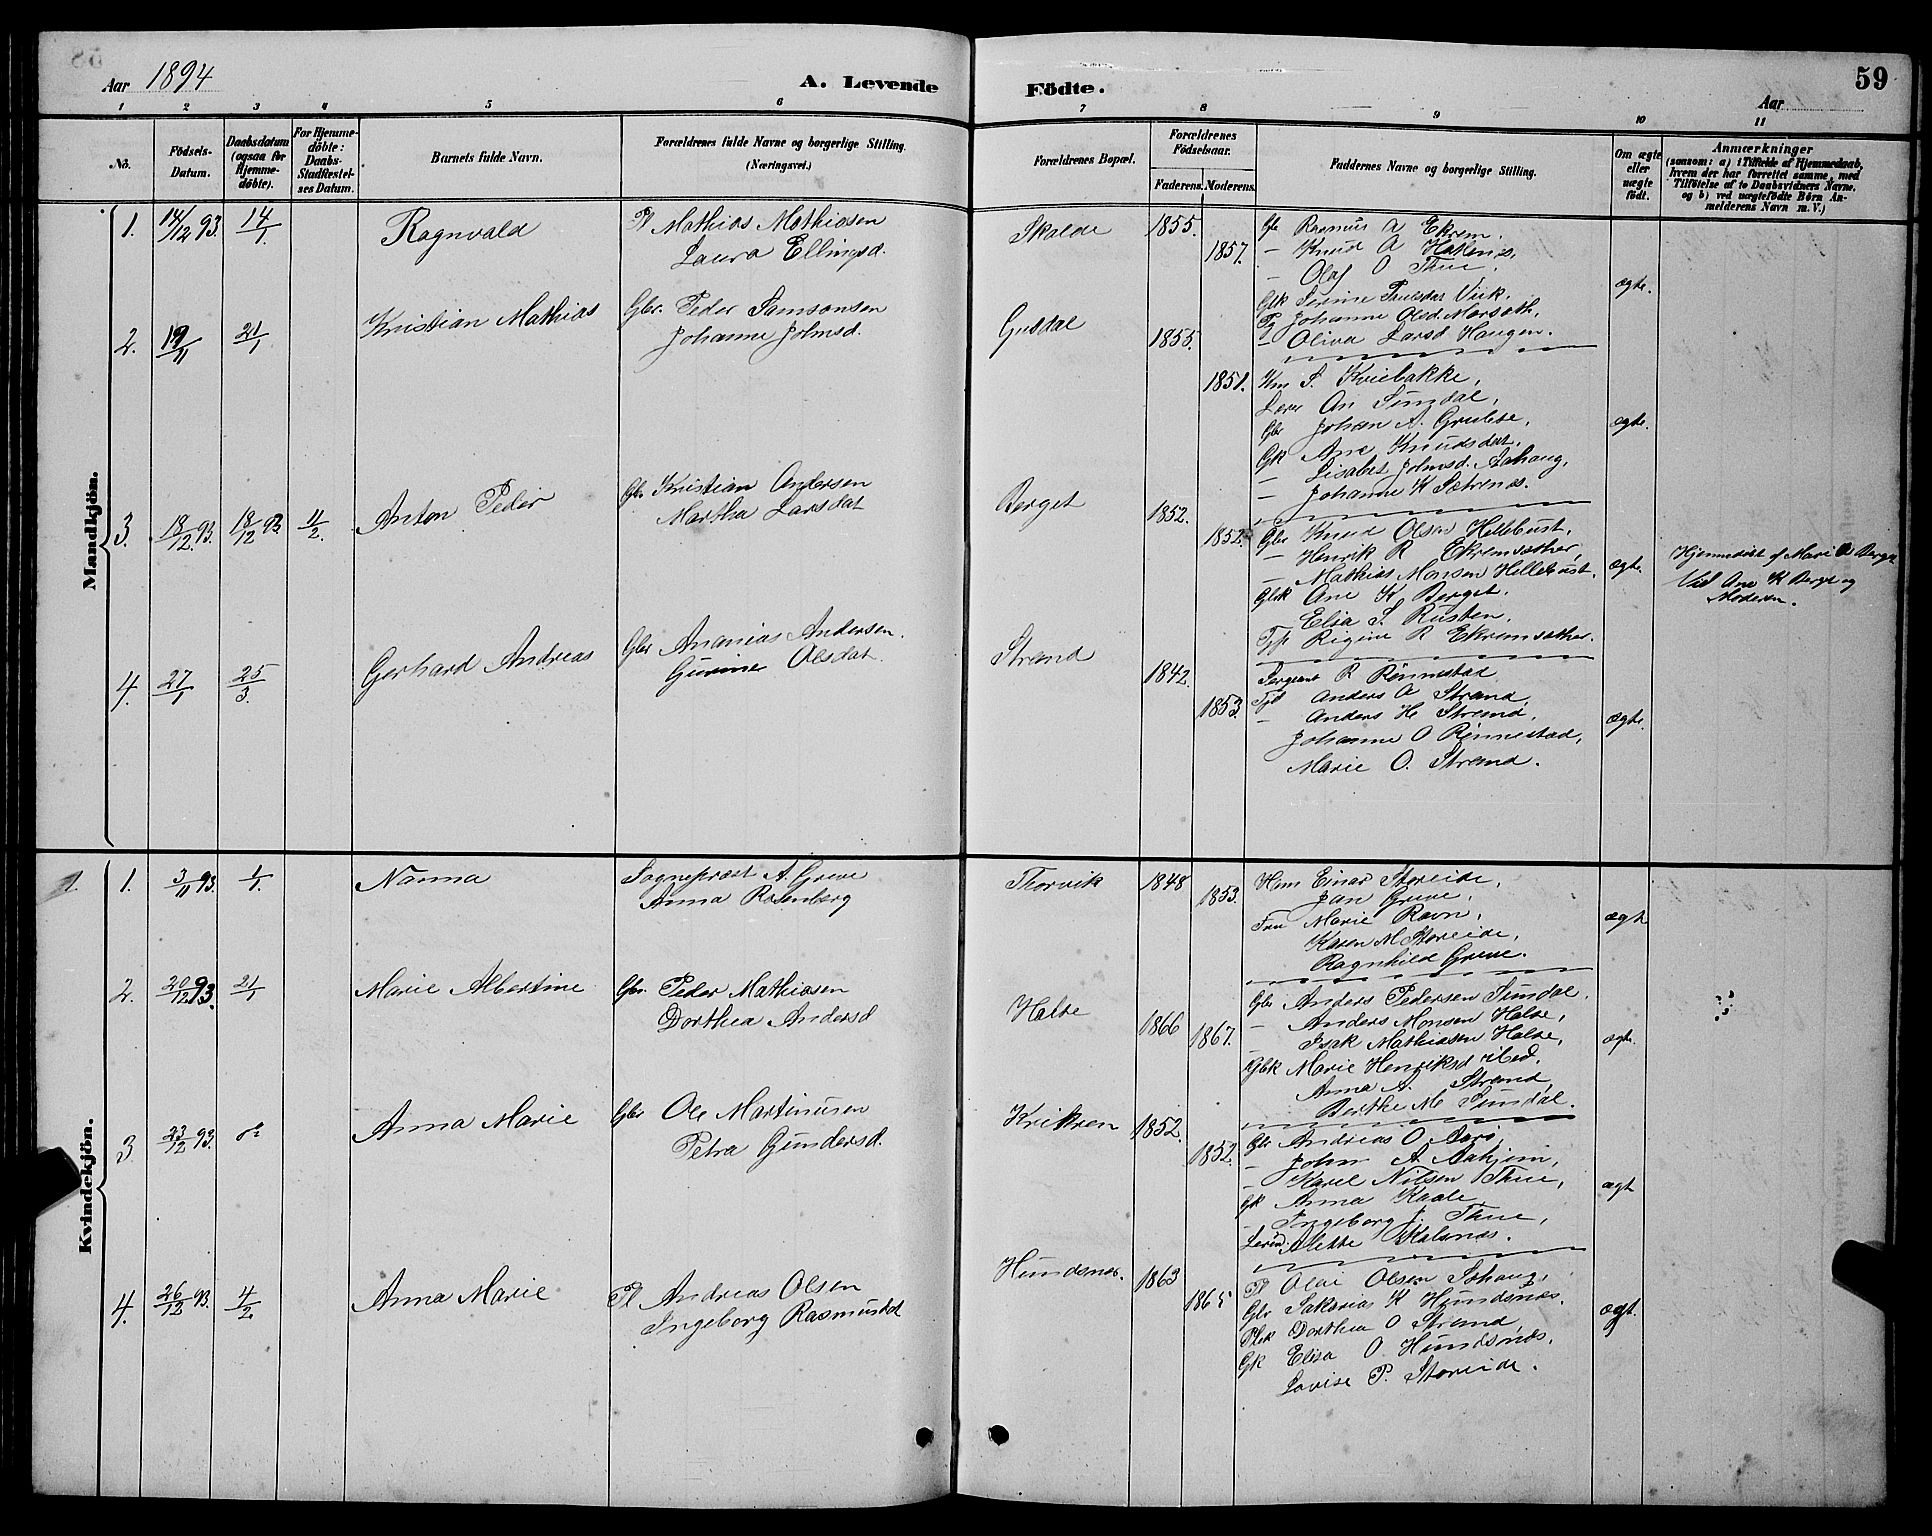 Aar 1894
A. Levende Födte.
59
Aar
1 2 3 4 5 6 7 8 9 10 11
No.
Födsels-Datum.
Daabsdatum (ogsaa for Hjemme-döbte).
For Hjemme-döbte: Daabs-Stadfæstel-ses Datum.
Barnets fulde Navn.
Forældrenes fulde Navne og borgerlige Stilling. (Næringsvei.)
Forældrenes Bopæl.
Forældrenes Födselsaar.
Faderens. Moderens.
Faddernes Navne og borgerlige Stilling.
Om ægte eller uægte födt.
Anmærkninger
(saasom: a) i Tilfælde af Hjemmedaab,
hvem der har forrettet samme, med
Tilföielse af to Daabsvidners Navne,
og b) ved uægtefödte Börn An-
melderens Navn m. V.)
Mandkjön.
1. 14/12 93. 14/1 Ragnvald
Pl Mathias Mathiasen
Laura Ellingsd.
Skalde 1855. 1857.
Gbr Rasmus A Ekrem,
- Knud O Hatlenes,
- Olaf O Thue,
Gbk Serine Paulsdat Viik,
Pg Johanne Olsd. Marsæth,
- Oliva Larsd Haugen.
ægte.
2. 19/11 21/1 Kristian Mathias
Gbr. Peder Samsonsen
Johanne Johnsd.
Gusdal 1855. 1851.
Km S. Kviebakke,
Lærer An Sundal,
Gbr Johan A. Grubse,
Gk Ane Knudsdat,
- Lisabet Johnsd. Aahaug,
- Johanne K Sætrenes.
ægte.
3. 18/12. 93. 18/12 93. 11/2. Anton Peder
Gbr Kristian Andersen
Martha Larsdat
Berget 1852. 1852.
Gbr Knud Olsen Hellebust,
- Henrik R Ekremsæther,
- Mathias Monsen Hellebust.
Gbk Ane K Berget.
Elisa S. Rusten,
Tjp Rigine R Ekremsæther.
ægte.
Hjemmedöbt af Marie Berget
Vid Ane K Berget og
Moderen.
4. 27/1 25/3. Gerhard Andreas
Gbr Ananias Andersen.
Gurine Olsdat.
Strand 1842. 1853.
Sergeant R Rønnestad
Tjd Anders A Strand,
- Anders H Strand,
Johanne O Rønnestad,
Marie O. Strand.
ægte.
Kvindekjön.
1. 3/11 93. 1/1. Nanna
Sogneprest A. Greve
Anna Rosenberg
Thorvik 1848 1853.
Hrm Einar Storeide,
Jan Greve,
Fru Marie Ravn,
Karen M Storeide,
Ragnhild Greve.
ægte
2. 20/12 93. 21/1 Marie Albertine
Gbr. Peder Mathiasen
Dorthea Andersd
Halse 1866 1867.
Gbr Anders Pedersen Sundal.
- Anders Monsen Halse,
- Isak Mathiasen Halse,
Gbk Marie Henriksd ibid,
Anna A. Strand,
Berthe M Sundal.
ægte.
3. 23/12 93. do Anna Marie
Gbr Ole Martinusen
Petra Gundersd.
Kriken 1852. 1852.
Gbr Andreas O Aarö,
- John A Aahjem,
- Karel Nilsen Thue,
Gk Anna Kaale,
- Ingeborg J. Thue,
Lærind. Alette Skalsnæs.
ægt
4. 26/12 93. 4/2 Anna Marie
Pl Andreas Olsen
Ingeborg Rasmusdt
Hundsnes. 1863 1865
Pl Olai Olsen Aahaug,
Gbr Sakarias K Hundsnæs.
Plek Dorthea O Strand,
Gk Elisa O. Hundsnæs,
Lovise P. Storeide.
ægt.